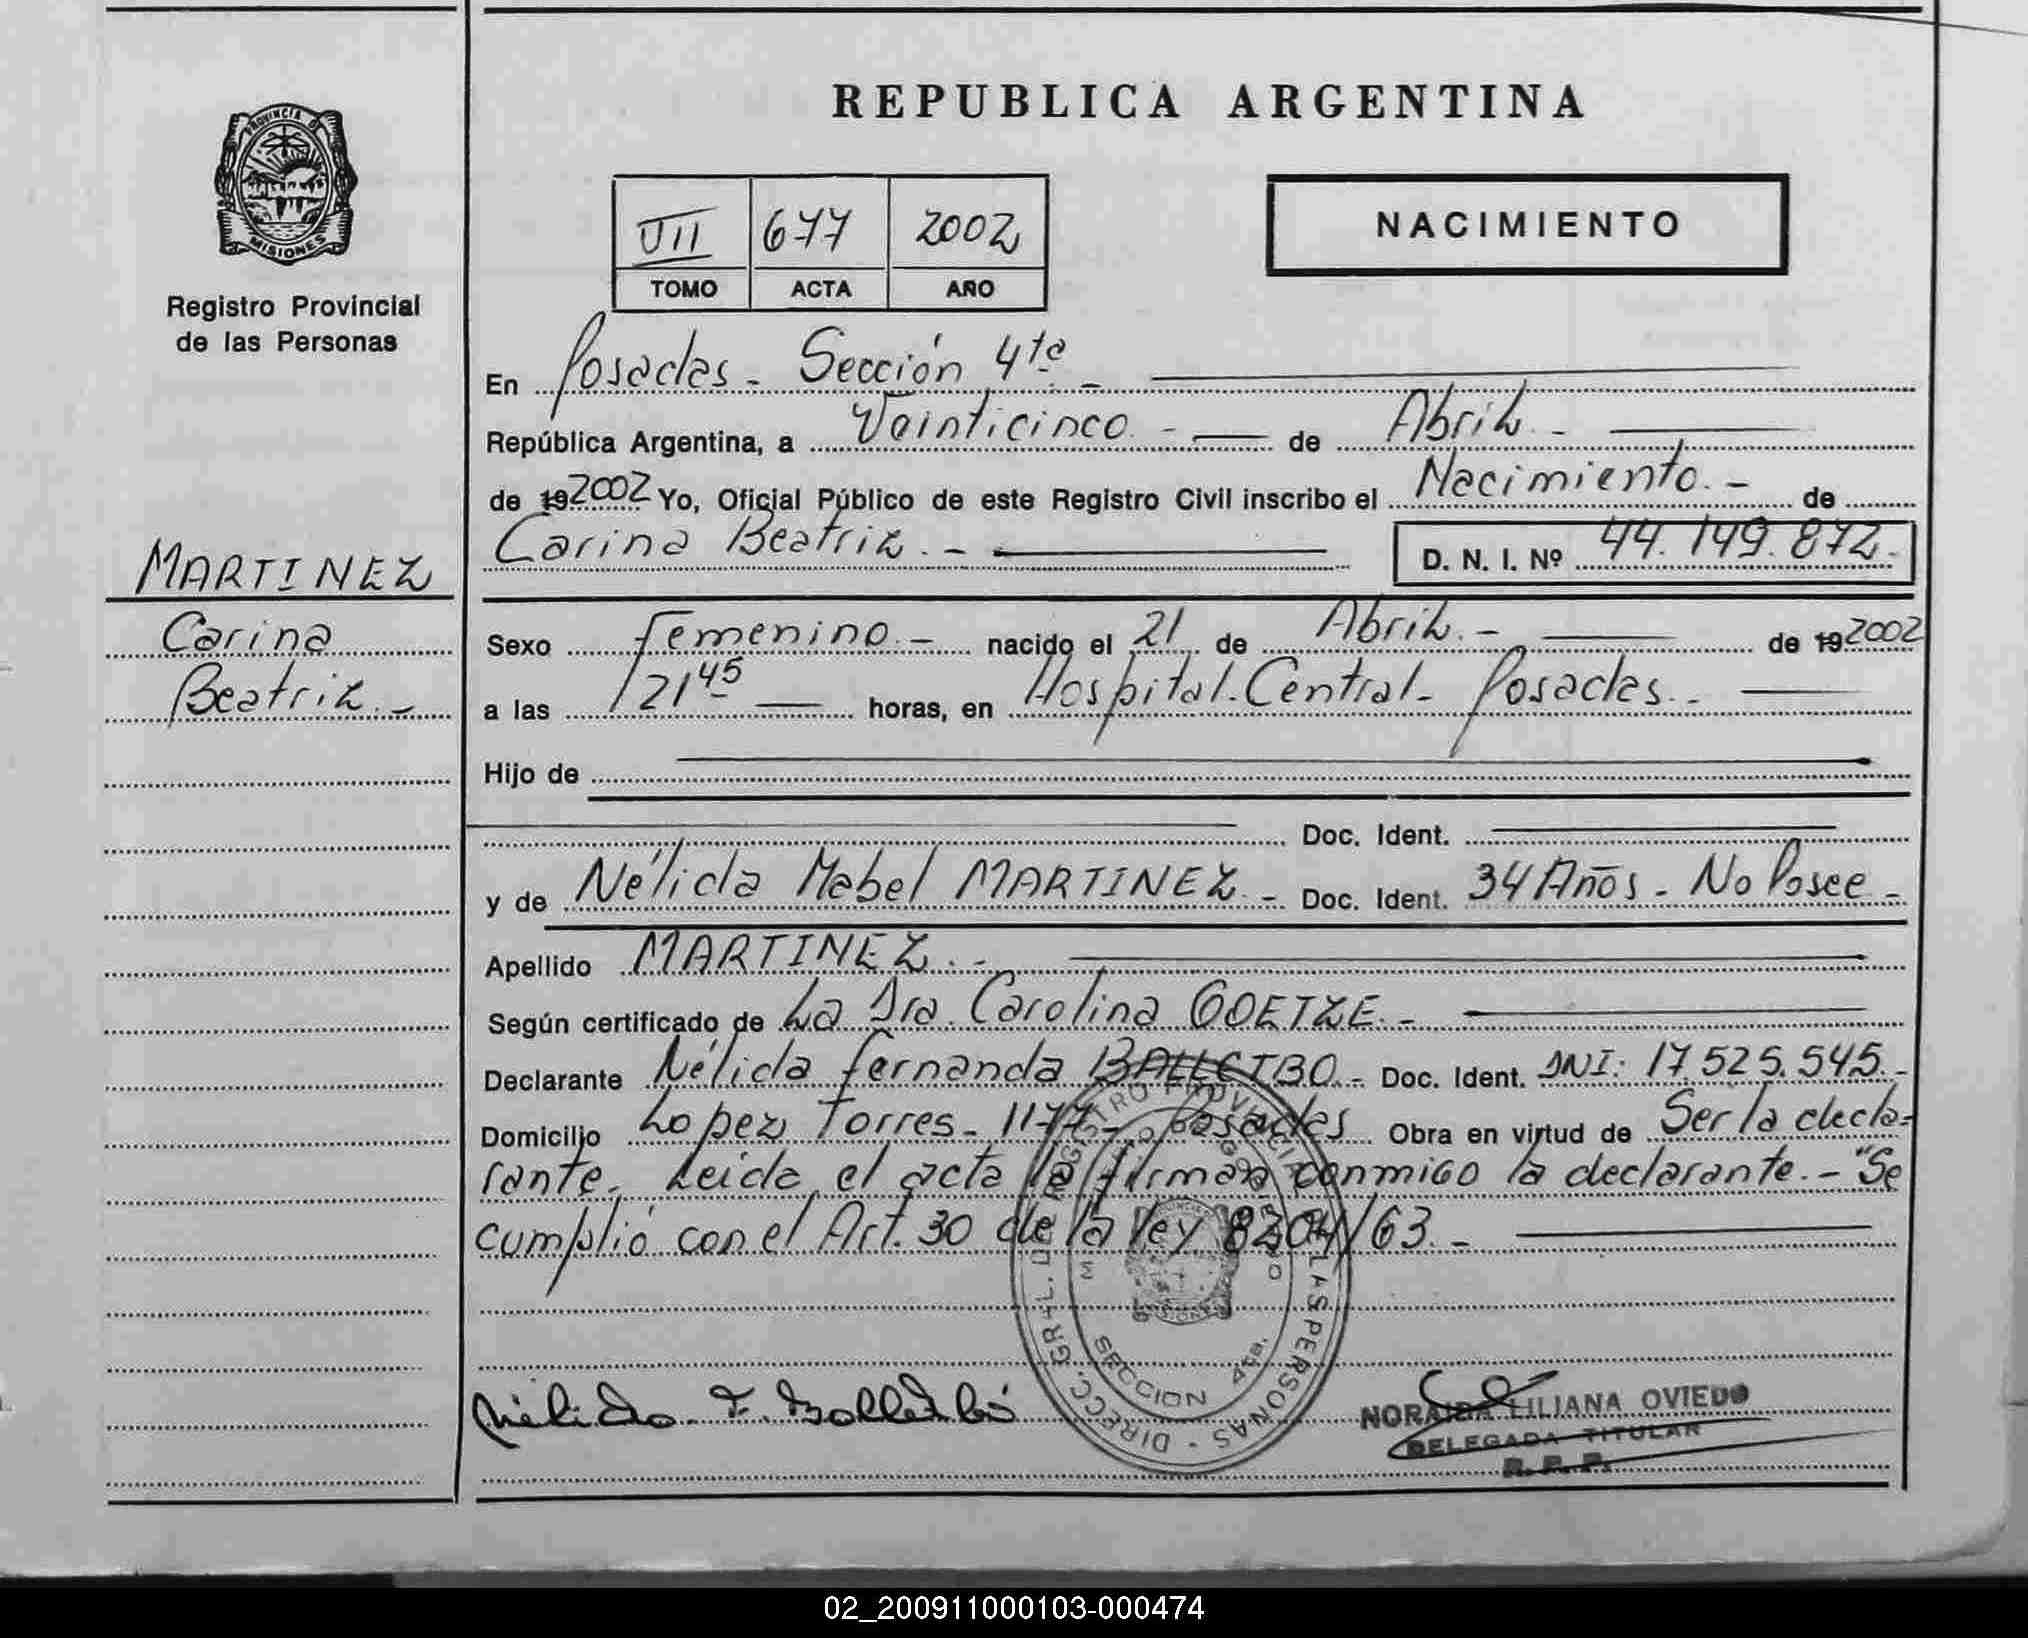 REPUBLICA ARGENTINA
PROVINCIA DE MISIONES
Registro Provincial
de las Personas
VII 677 2002
TOMO ACTA AÑO
NACIMIENTO
En Posadas - Sección 4ta -
República Argentina, a Veinticinco - de Abril -
de 19 2002 Yo, Oficial Público de este Registro Civil inscribo el Nacimiento. - de
Carina Beatriz. - D. N. I. Nº 44.149.872.
MARTINEZ
Carina
Beatriz. -
Sexo femenino. - nacido el 21 de Abril. - de 19 2002
a las 21 45 horas, en Hospital Central - Posadas. -
Hijo de
Doc. Ident.
y de Nélida Mabel MARTINEZ. - Doc. Ident. 34 Años - No Posee -
Apellido MARTINEZ. -
Según certificado de La Dra. Carolina GOETZE. -
Declarante Nélida fernanda Doc. Ident. DNI: 17.525.545. -
Domicilio Lopez Torres - 1177 - Posadas Obra en virtud de Ser la decla-
rante. Leida el acta la firman conmigo la declarante. - "Se
cumplió con el Art. 30 de la ley 8204/63. -
DIRECC. GRAL. DEL REGISTRO PROVINCIAL DE LAS PERSONAS
SECCION 4ta.
Nélida F.
NORAIDA LILIANA OVIEDO
DELEGADA TITULAR
R. P. P.
02_200911000103-000474